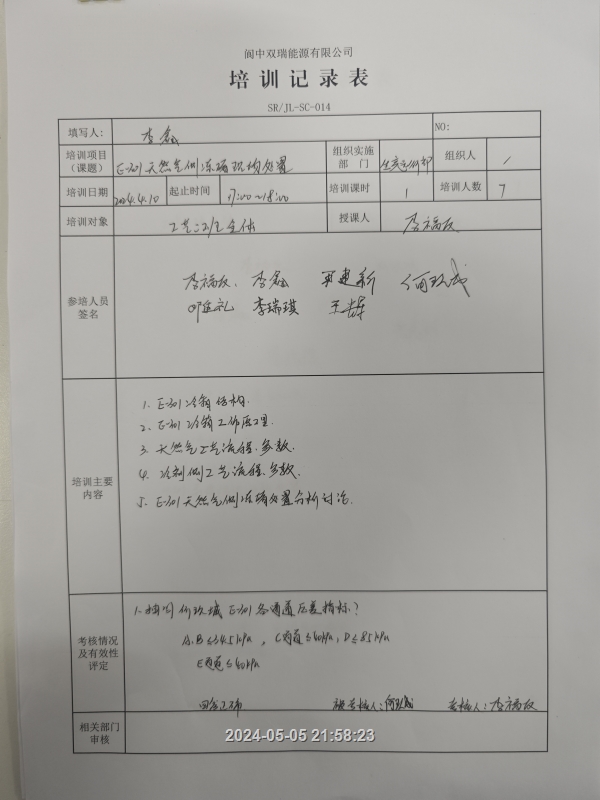 阆中双瑞能源有限公司
培训记录表
SR/JL-SC-014
填写人： 李鑫 NO:
培训项目（课题） E-301天然气侧冻堵现场处置 组织实施部门 生产运行部 组织人 /
培训日期 2024.4.10 起止时间 17:00~18:00 培训课时 1 培训人数 7
培训对象 工艺二班全体 授课人 李福友
参培人员签名
李福友、李鑫 建新 何玖成
邓廷礼 李瑞琪 王
培训主要内容
1. E-301冷箱结构.
2. E-301冷箱工作原理.
3. 天然气工艺流程、参数.
4. 冷剂侧工艺流程、参数.
5. E-301天然气侧冻堵处置分析讨论.
考核情况及有效性评定
1. 抽问何玖城E-301各通道压差指标？
A、B≤34.5kPa，C通道≤40kPa，D≤85kPa
E通道≤40kPa
回答正确 被考核人：何玖成 考核人：李福友
相关部门审核
2024-05-05 21:58:23